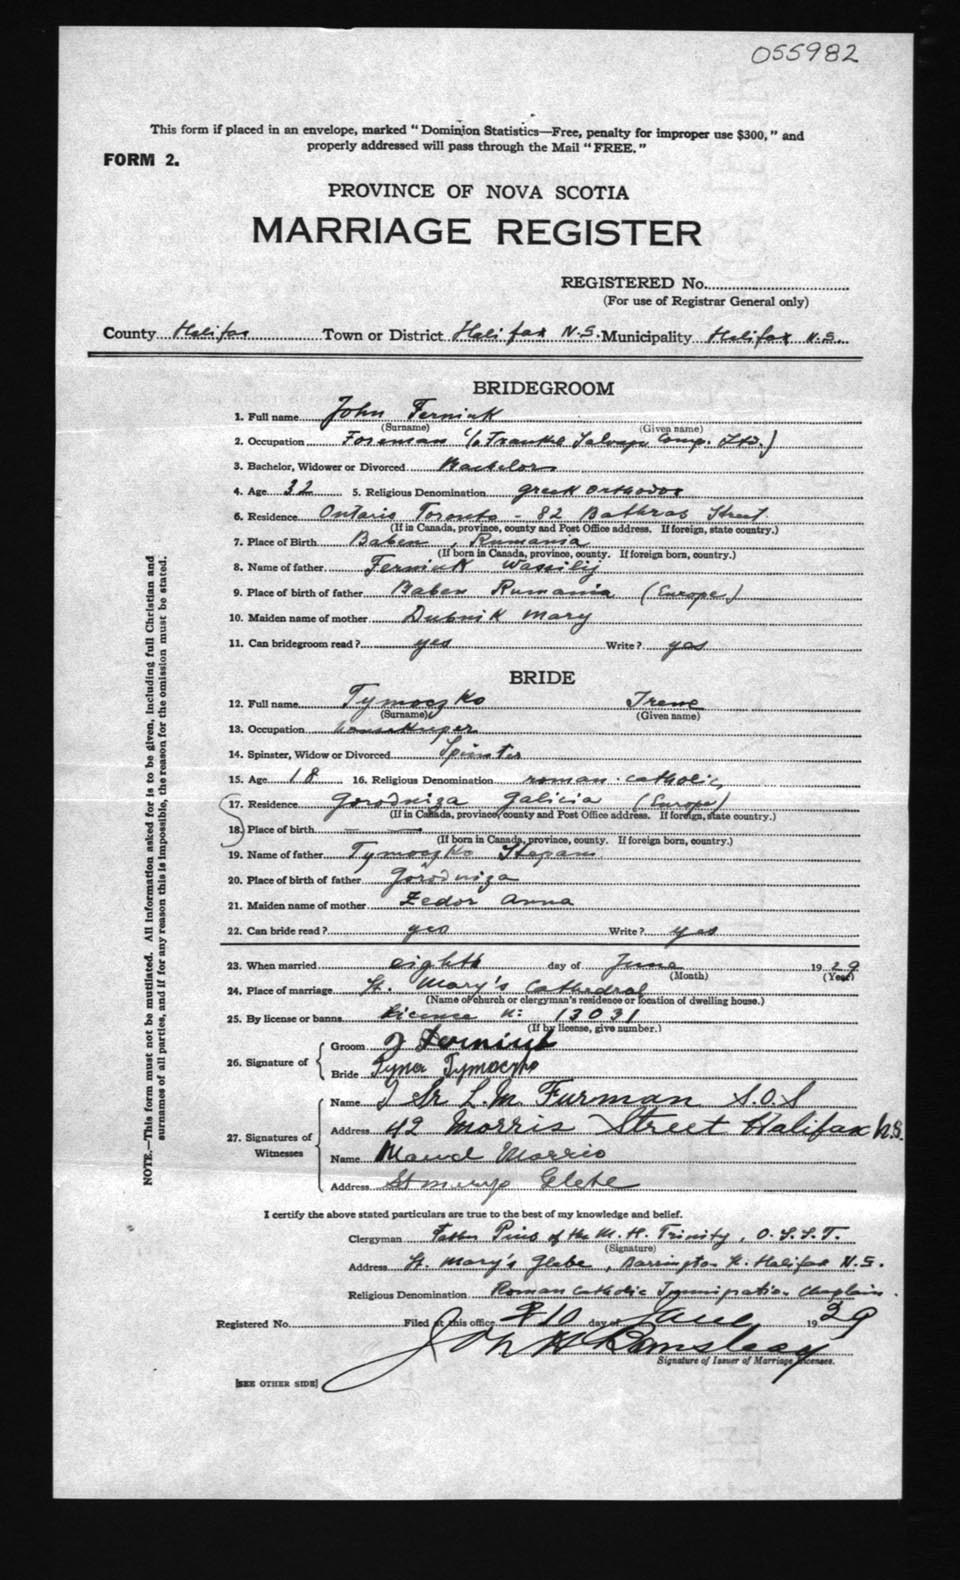 055982
This form if placed in an envelope, marked "Dominion Statistics—Free, penalty for improper use $300," and
properly addressed will pass through the Mail "FREE."
FORM 2.
PROVINCE OF NOVA SCOTIA
MARRIAGE REGISTER
REGISTERED No.
(For use of Registrar General only)
County Halifax Town or District Halifax N.S. Municipality Halifax N.S.
BRIDEGROOM
1. Full name John Ferniuk
(Surname) (Given name)
2. Occupation Foreman Comp. Ltd.)
3. Bachelor, Widower or Divorced Bachelor
4. Age 32 5. Religious Denomination greek orthodox
6. Residence Ontario Toronto - 82 Street
(If in Canada, province, county and Post Office address. If foreign, state country.)
7. Place of Birth Baben, Rumania
(If born in Canada, province, county. If foreign born, country.)
8. Name of father Ferniuk Wassilij
9. Place of birth of father Baben Rumania (Europe)
10. Maiden name of mother Dubnik Mary
11. Can bridegroom read? yes Write? yes
BRIDE
12. Full name Tymoczko Irene
(Surname) (Given name)
13. Occupation
14. Spinster, Widow or Divorced Spinster
15. Age 18 16. Religious Denomination roman catholic
17. Residence Gorodniza Galicia (Europe)
(If in Canada, province, county and Post Office address. If foreign, state country.)
18. Place of birth — —
(If born in Canada, province, county. If foreign born, country.)
19. Name of father Tymoczko Stepan
20. Place of birth of father Gorodniza
21. Maiden name of mother Fedor Anna
22. Can bride read? yes Write? yes
23. When married eighth day of June 1929
(Month) (Year)
24. Place of marriage St. Mary's Cathedral
(Name of church or clergyman's residence or location of dwelling house.)
25. By license or banns License N: 13031
(If by license, give number.)
26. Signature of Groom J Ferniuk
Bride Tymoczko
27. Signatures of Witnesses
Name Sr L. M. Furman S.O.S
Address 42 Morris Street Halifax N.S.
Name Maud
Address St marys Glebe
I certify the above stated particulars are true to the best of my knowledge and belief.
Clergyman Father Pius of the M. H. Trinity, O.S.S.T.
(Signature)
Address St. Mary's Glebe, Barrington St. Halifax N.S.
Religious Denomination Roman Catholic Immigration Chaplain.
Registered No. Filed at this office 10 day of June 1929
Signature of Issuer of Marriage Licenses.
[SEE OTHER SIDE]
NOTE.—This form must not be mutilated. All information asked for is to be given, including full Christian and
surnames of all parties, and if for any reason this is impossible, the reason for the omission must be stated.